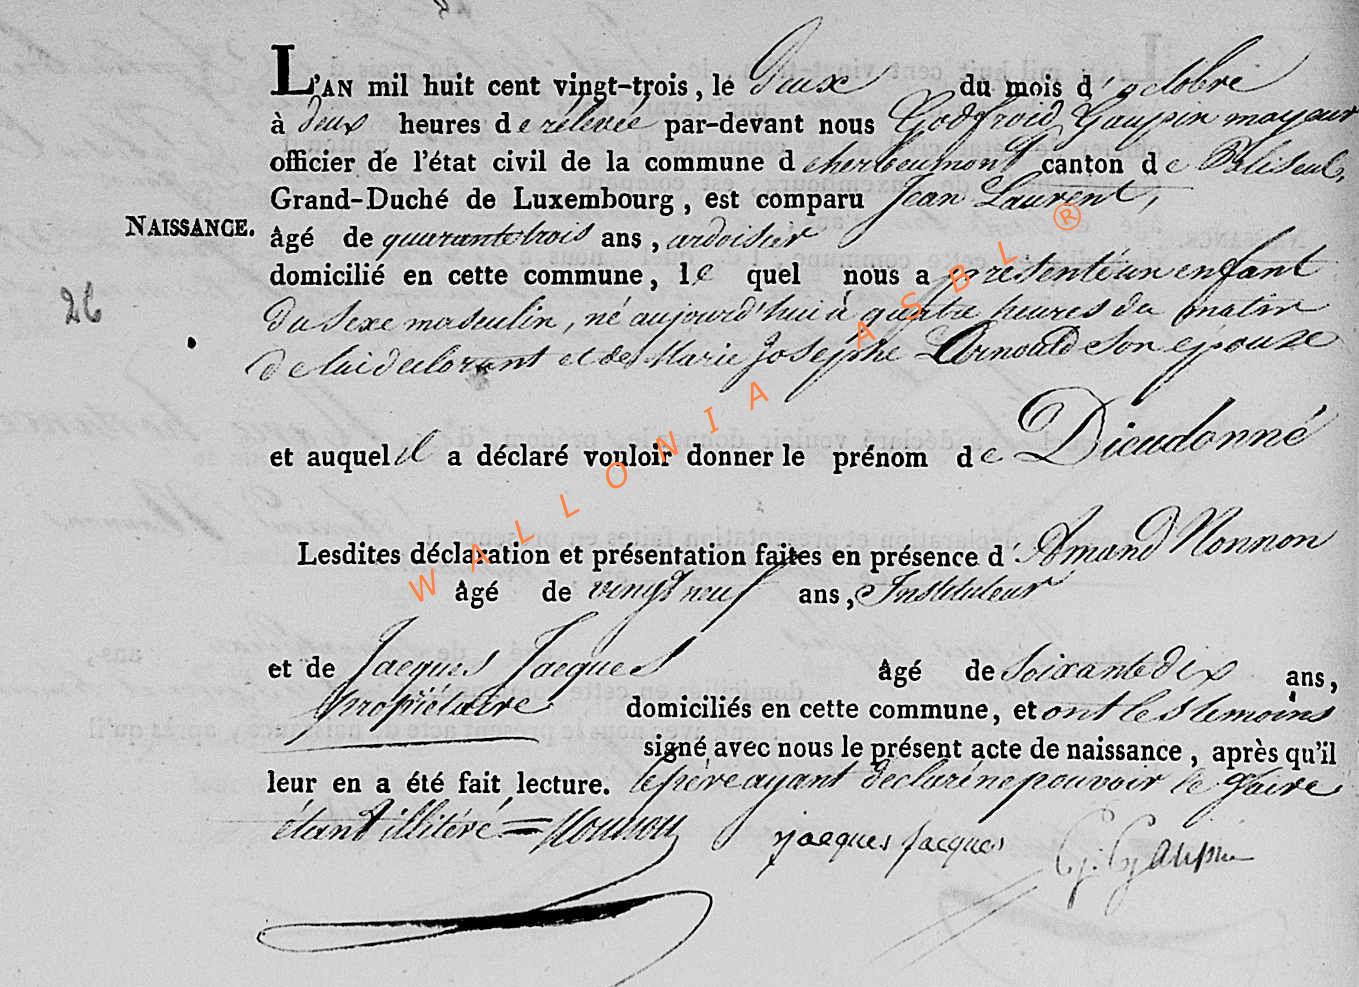 L'AN mil huit cent vingt-trois, le Deux du mois d'octobre
à deux heures de rélevée par-devant nous Godfroid Gaupin mayeur
officier de l'état civil de la commune d'herbeumont canton de Paliseul,
Grand-Duché de Luxembourg, est comparu Jean Laurent,
NAISSANCE.
âgé de quarante trois ans, ardoisier
domicilié en cette commune, le quel nous a présenté un enfant
26
du sexe masculin, né aujourd'hui à quatre heures du matin
de lui déclarant et de Marie Josephe Arnould son épouze
et auquel il a déclaré vouloir donner le prénom de Dieudonné
Lesdites déclaration et présentation faites en présence d'Amand Nonnon
âgé de vingt neuf ans, Instituteur
et de Jacques Jacques âgé de Soixante dix ans,
propriétaire domiciliés en cette commune, et ont les témoins
signé avec nous le présent acte de naissance, après qu'il
leur en a été fait lecture. le père ayant déclaré ne pouvoir le faire
étant illitéré = Nonnon jacques jacques G. Gaupin
WALLONIA ASBL ®